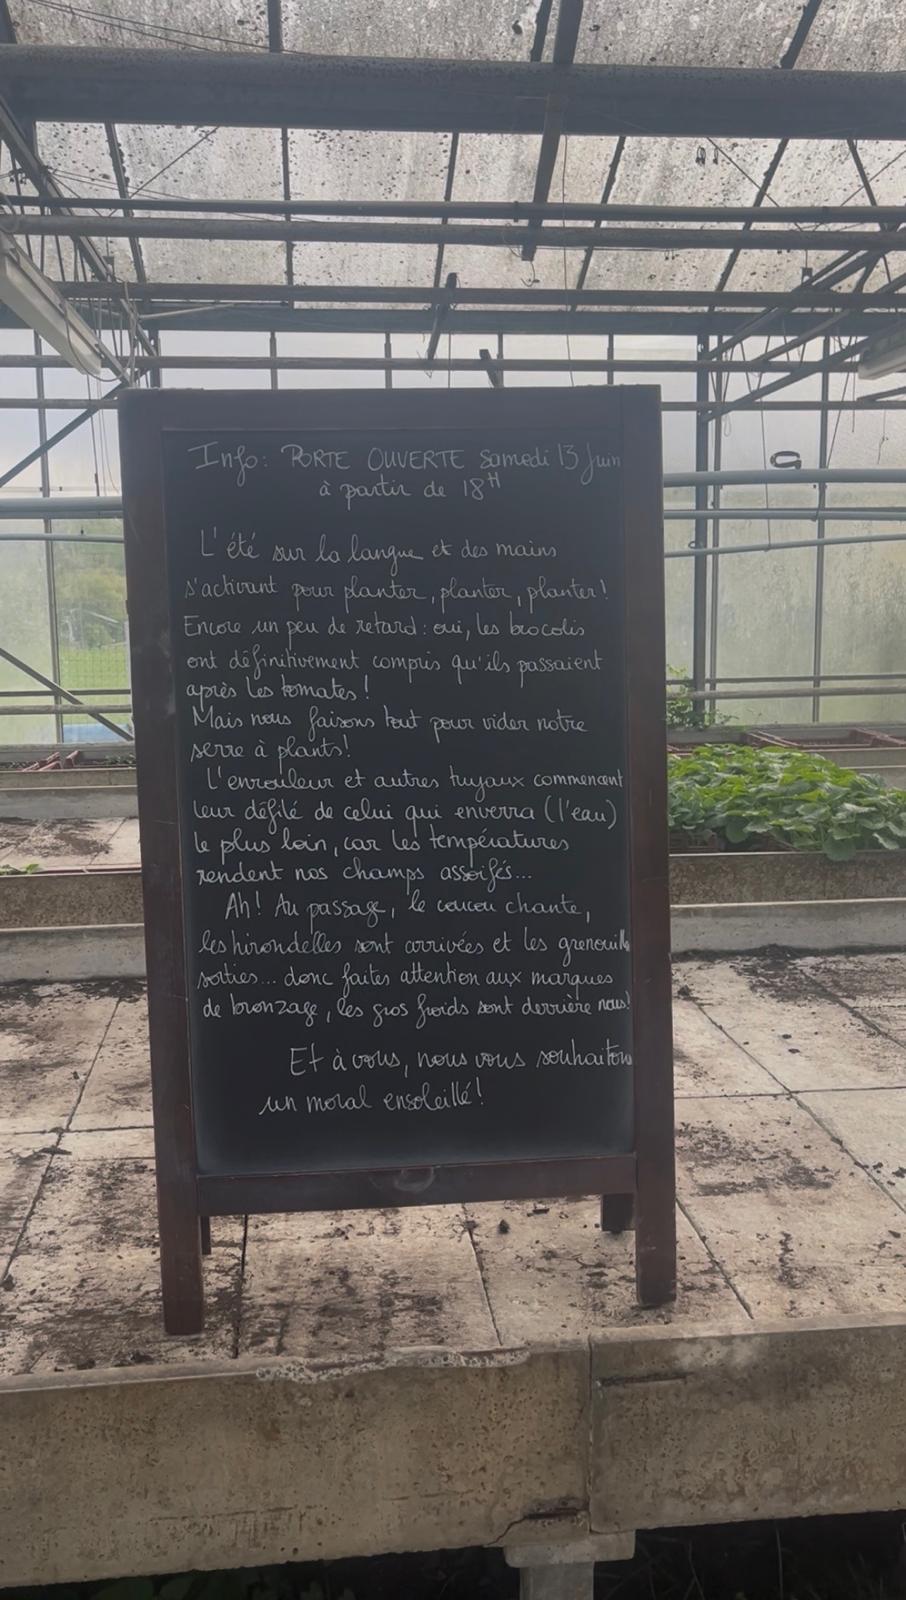 Info: PORTE OUVERTE Samedi 13 Juin
à partir de 18H
L'été sur la langue et des mains
s'activant pour planter, planter, planter!
Encore un peu de retard: oui, les brocolis
ont définitivement compris qu'ils passaient
après les tomates!
Mais nous faisons tout pour vider notre
serre à plants!
L'enrouleur et autres tuyaux commencent
leur défilé de celui qui enverra (l'eau)
le plus loin, car les températures
rendent nos champs assoifés...
Ah! Au passage, le coucou chante,
les hirondelles sont arrivées et les grenouille
sorties... donc faites attention aux marques
de bronzage, les gros froids sont derrière nous!
Et à vous, nous vous souhaitons
un moral ensoleillé!